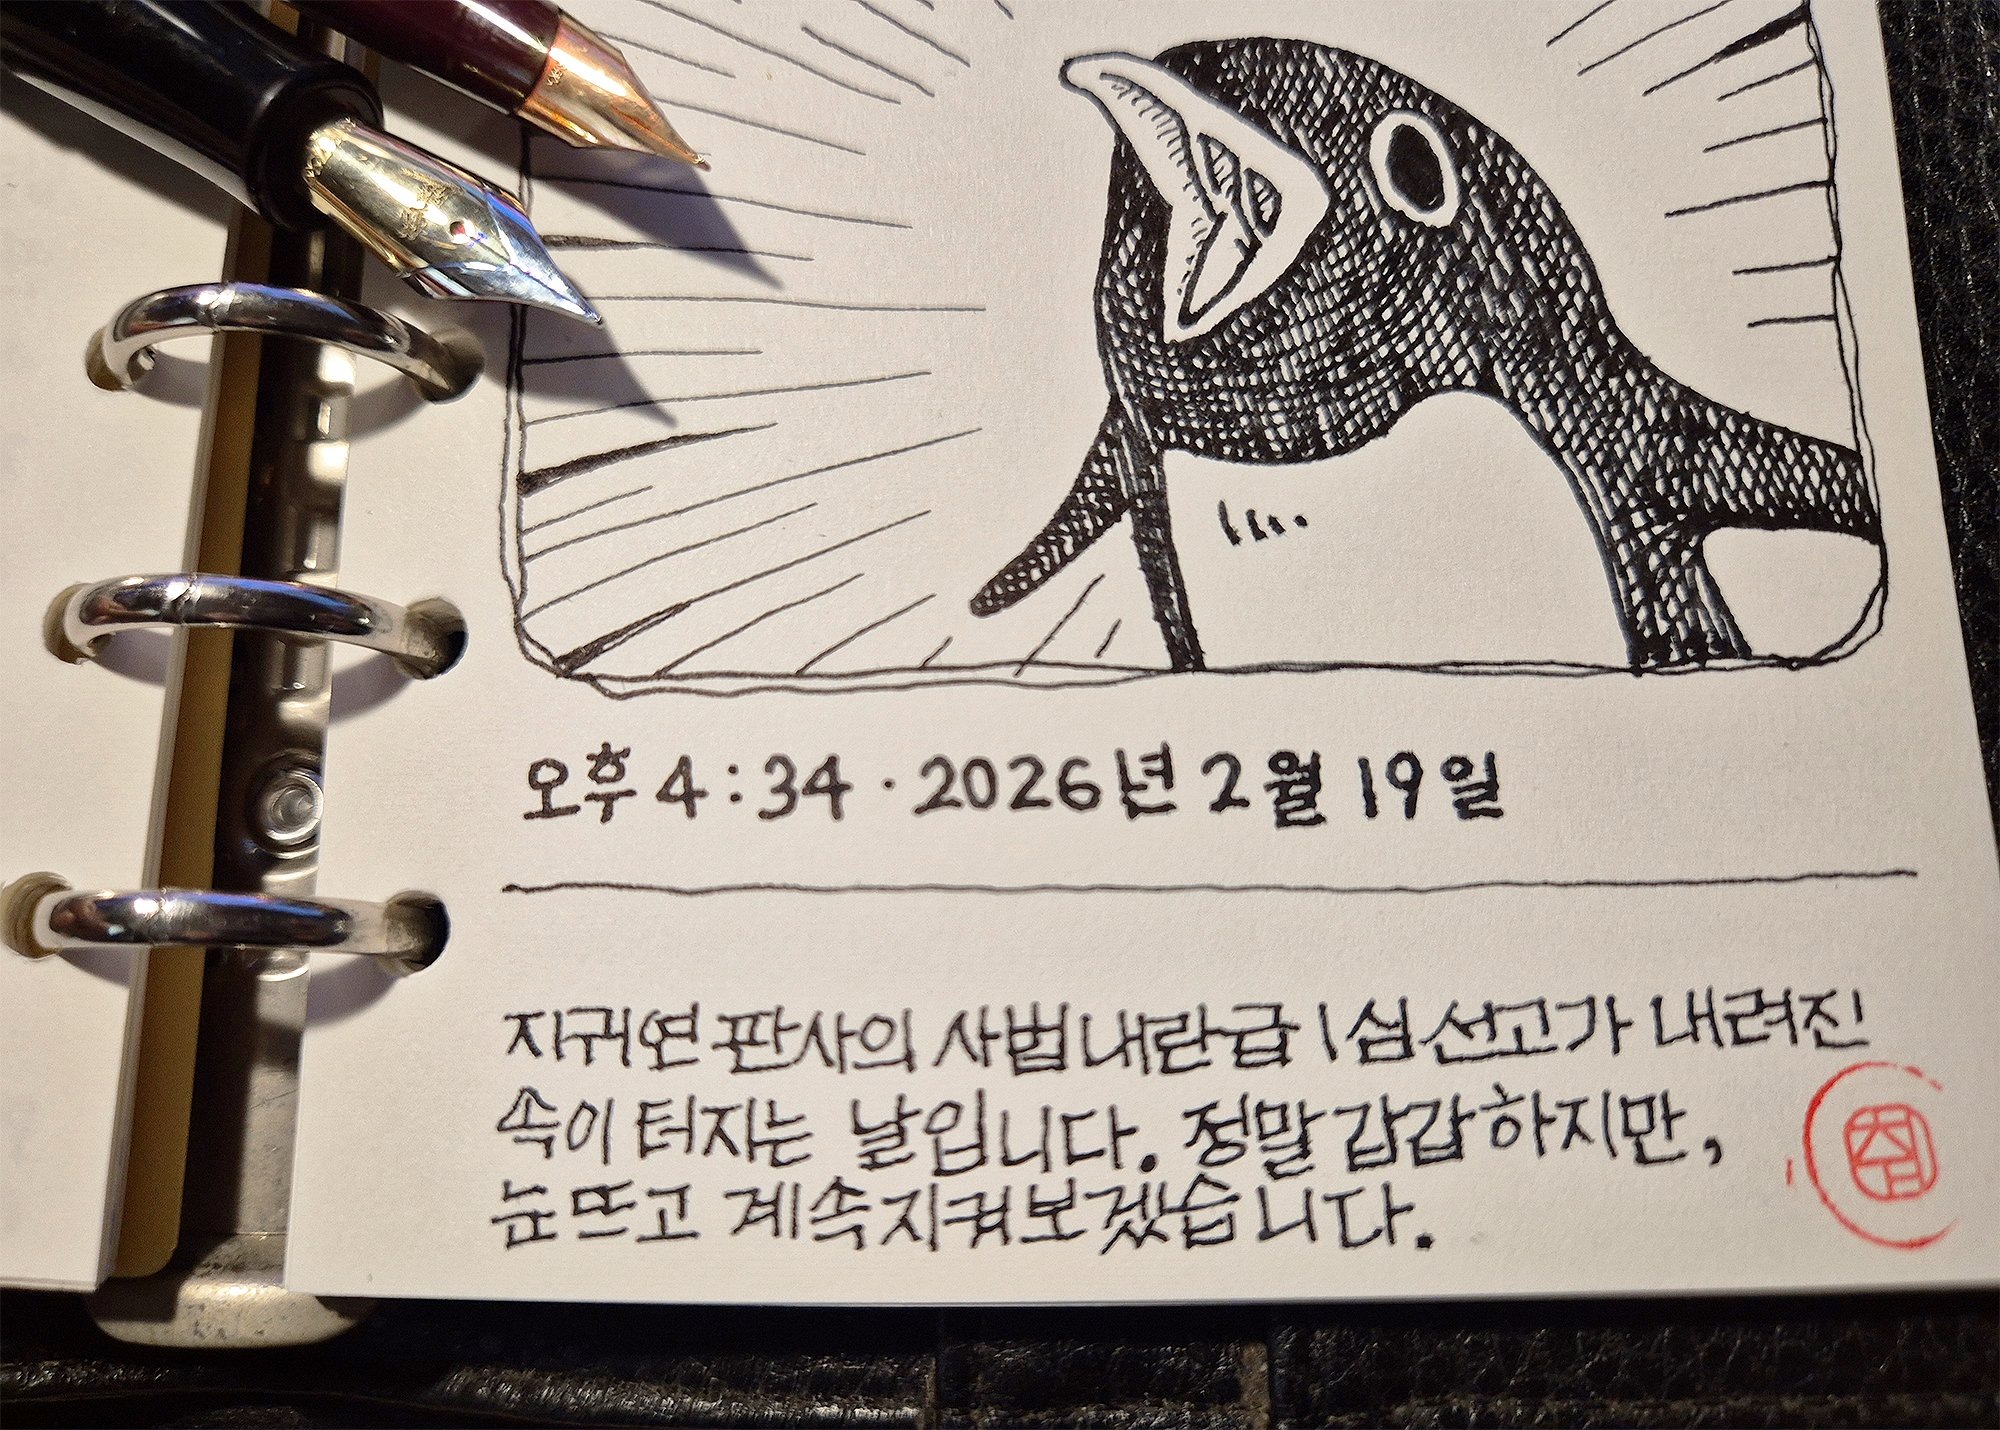 오후 4:34 · 2026년 2월 19일
지귀연 판사의 사법내란급 1심 선고가 내려진
속이 터지는 날입니다. 정말 갑갑하지만,
눈뜨고 계속지켜보겠습니다.